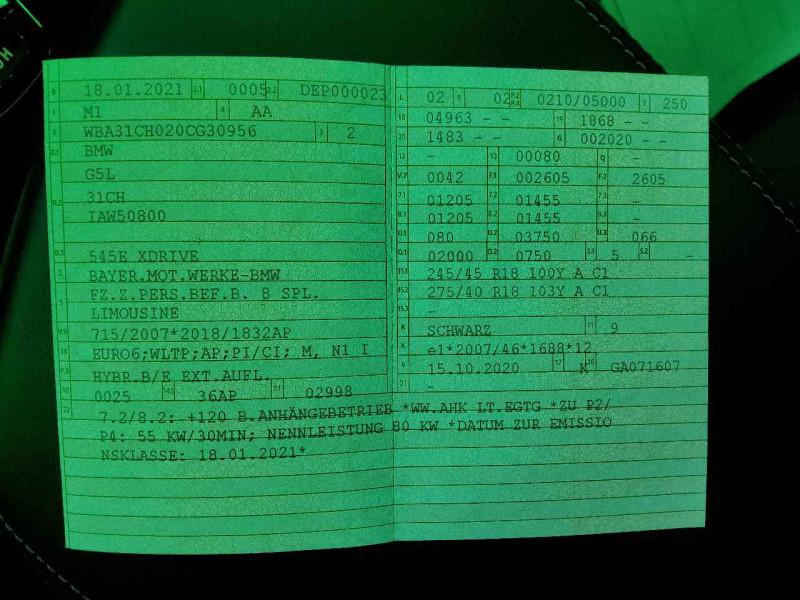 B 18.01.2021 2.1 0005 2.2 DEP000023
J M1 4 AA
E WBA31CH020CG30956 3 2
D.1 BMW
G5L
D.2 31CH
IAW50800
D.3 545E XDRIVE
2 BAYER.MOT.WERKE-BMW
5 FZ.Z.PERS.BEF.B. 8 SPL.
LIMOUSINE
V.9 715/2007*2018/1832AP
14 EURO6;WLTP;AP;PI/CI; M, N1 I
P.3 HYBR.B/E EXT.AUFL.
10 0025 14.1 36AP P.1 02998
L 02 9 02 P.2 P.4 0210/05000 T 250
18 04963 - - 19 1868 - -
20 1483 - - G 002020 - -
12 - 13 00080 Q -
V.7 0042 F.1 002605 F.2 2605
7.1 01205 7.2 01455 7.3 -
8.1 01205 8.2 01455 8.3 -
U.1 080 U.2 03750 U.3 066
O.1 02000 O.2 0750 S.1 5 S.2 -
15.1 245/45 R18 100Y A C1
15.2 275/40 R18 103Y A C1
15.3 -
R SCHWARZ 11 9
K e1*2007/46*1688*12
6 15.10.2020 17 K 16 GA071607
21 -
22 7.2/8.2: +120 B.ANHÄNGEBETRIEB *WW.AHK LT.EGTG *ZU P2/
P4: 55 KW/30MIN; NENNLEISTUNG 80 KW *DATUM ZUR EMISSIO
NSKLASSE: 18.01.2021*